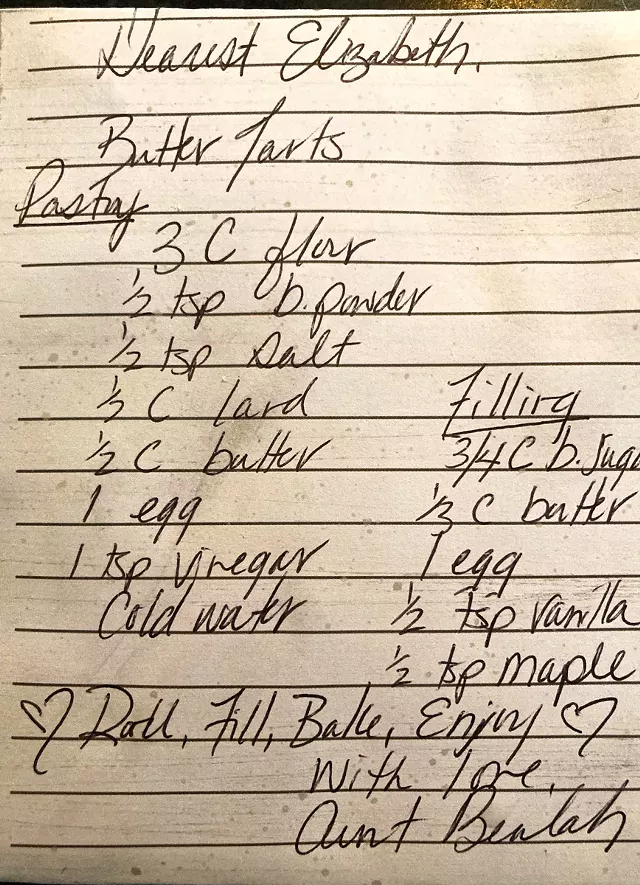 Dearest Elizabeth,
Butter Tarts
Pastry
3 C flour
1/2 tsp b. powder
1/2 tsp salt
1/2 C lard
1/2 C butter
1 egg
1 tsp vinegar
Cold water
Filling
3/4 C b. suga
1/3 C butter
1 egg
1/2 tsp vanilla
1/2 tsp maple
♡ Roll, Fill, Bake, Enjoy ♡
With love,
Aunt Beulah